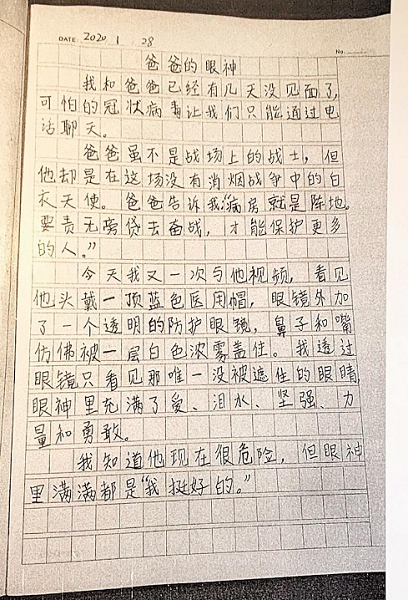 DATE 2020 1 28
No.
爸爸的眼神
我和爸爸已经有几天没见面了,
可怕的冠状病毒让我们只能通过电
话聊天。
爸爸虽不是战场上的战士,但
他却是在这场没有消烟战争中的白
衣天使。爸爸告诉我:“病房就是阵地,
要责无旁贷去奋战,才能保护更多
的人。”
今天我又一次与他视频,看见
他头戴一顶蓝色医用帽,眼镜外加
了一个透明的防护眼镜,鼻子和嘴
仿佛被一层白色浓雾盖住。我透过
眼镜只看见那唯一没被遮住的眼睛
眼神里充满了爱、泪水、坚强、力
量和勇敢。
我知道他现在很危险,但眼神
里满满都是“我挺好的。”